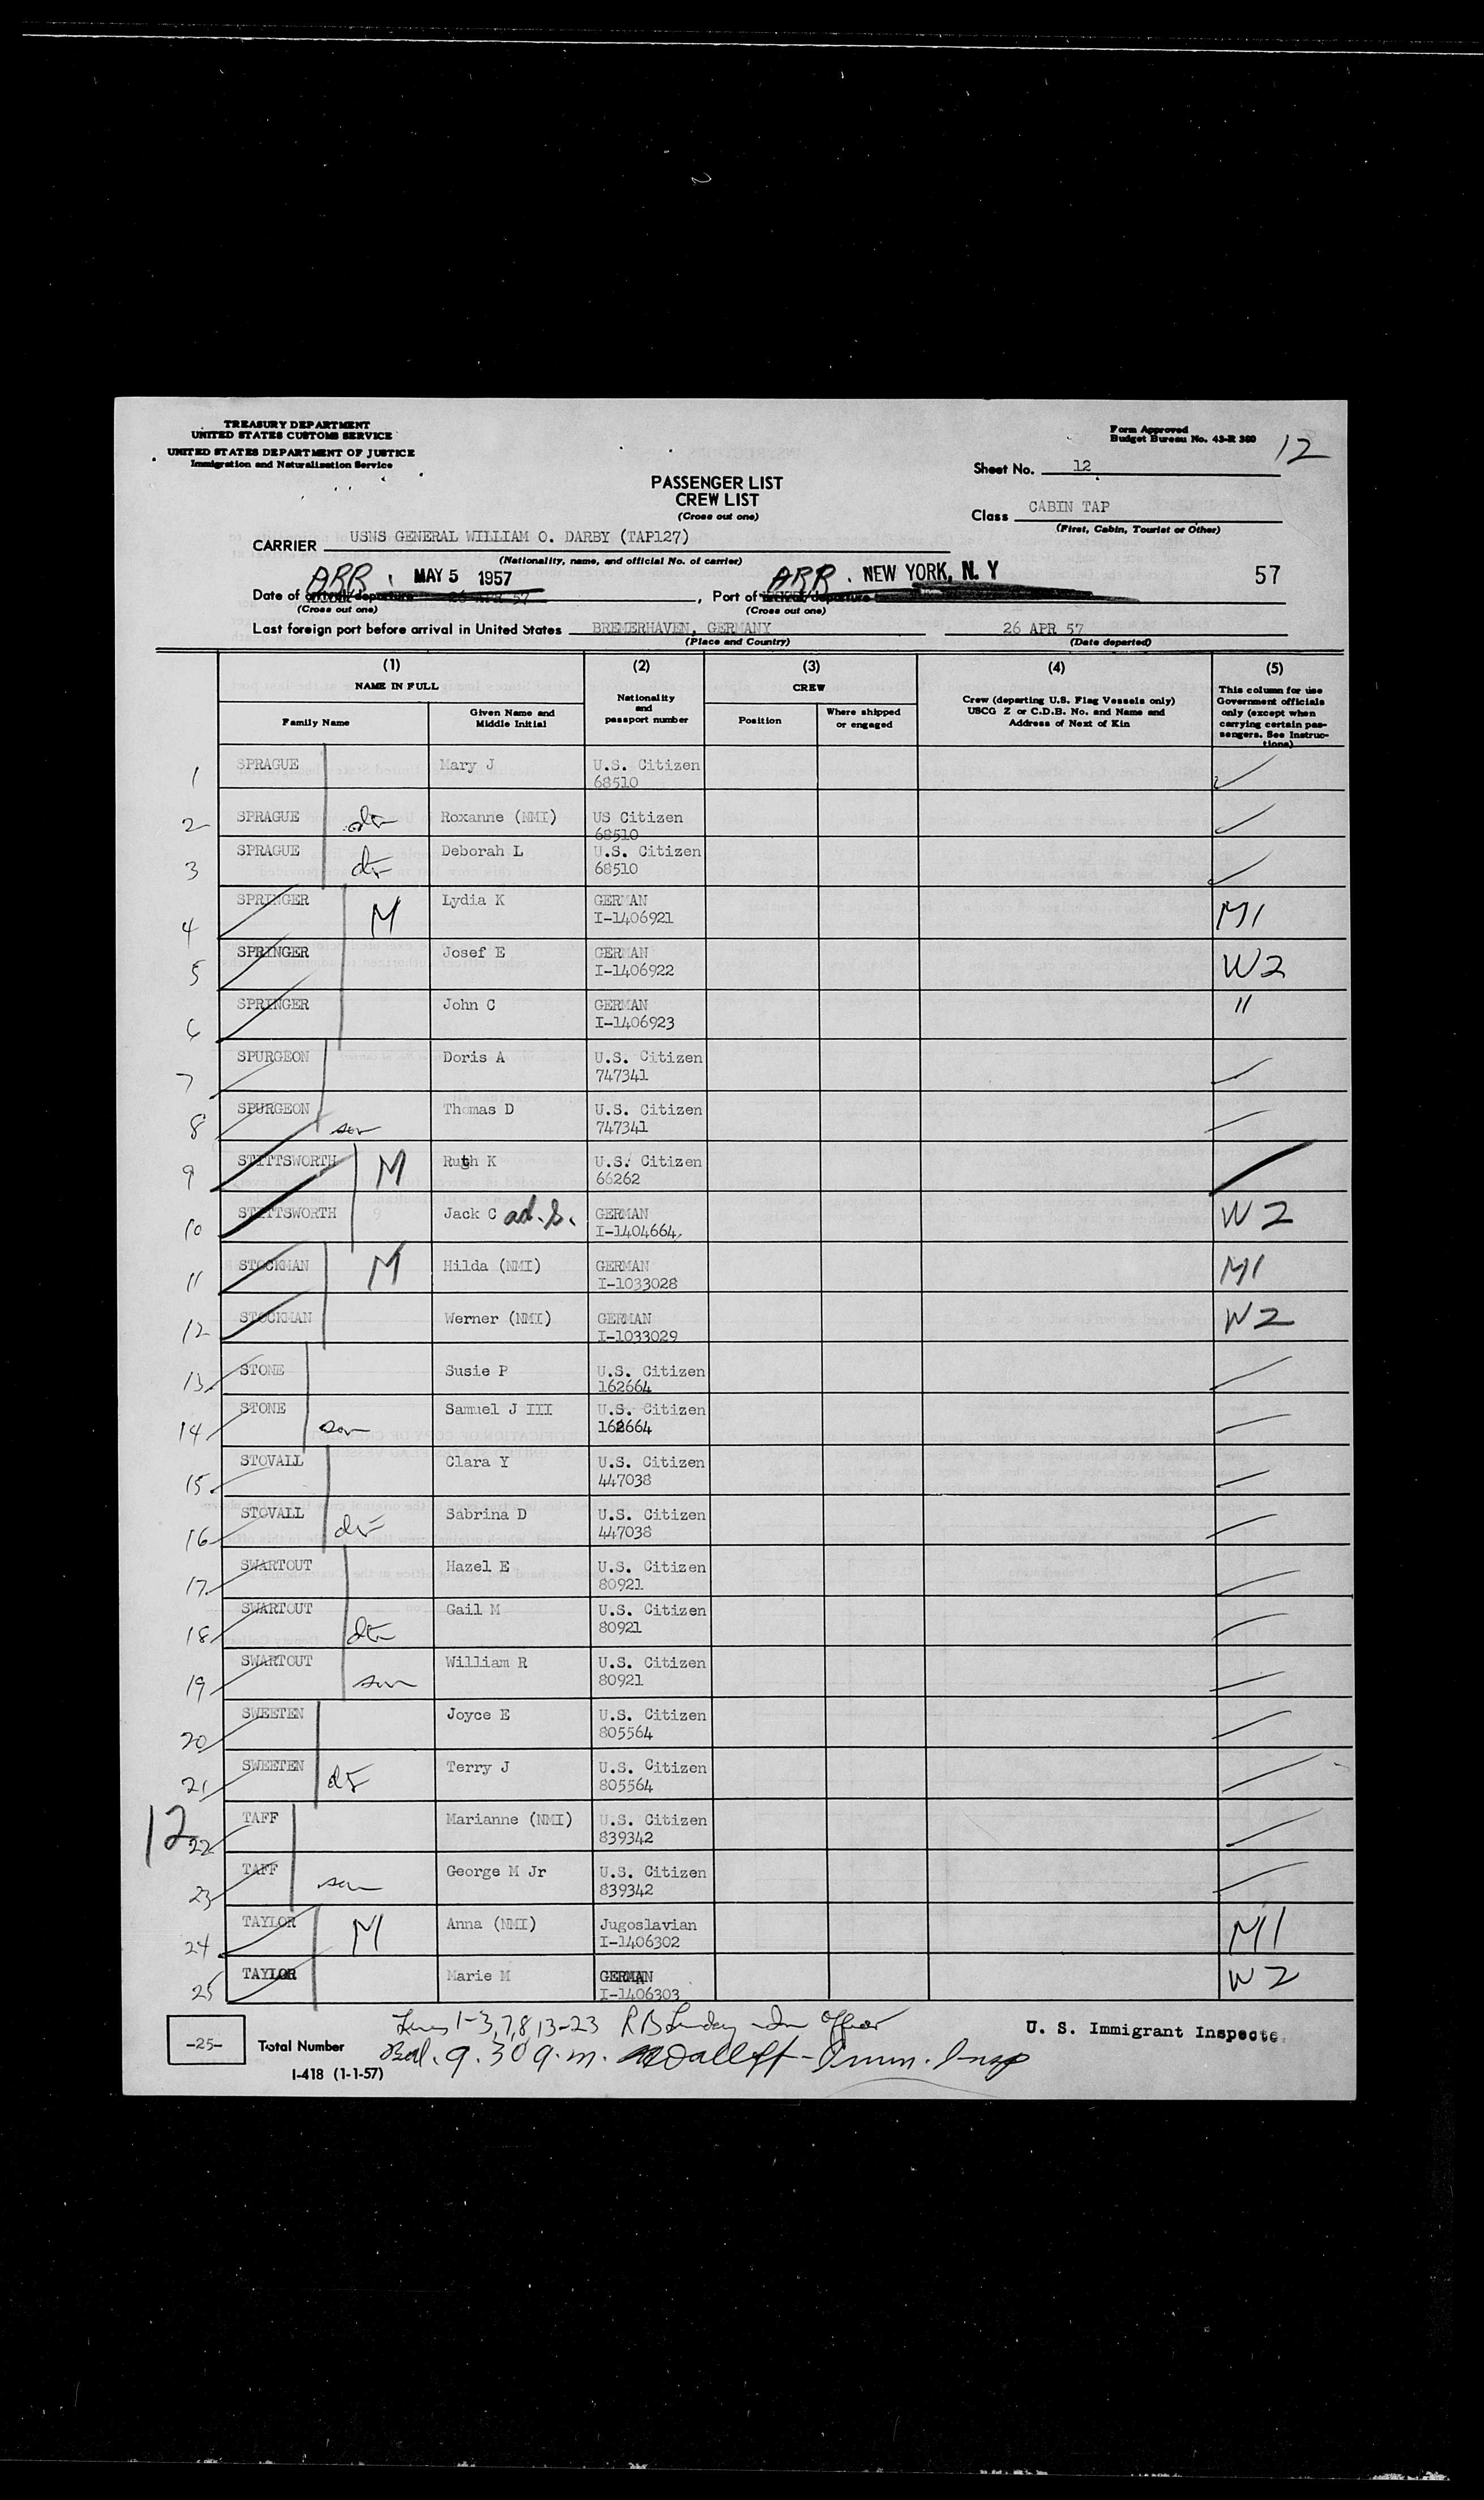 TREASURY DEPARTMENT
UNITED STATES CUSTOMS SERVICE
UNITED STATES DEPARTMENT OF JUSTICE
Immigration and Naturalization Service
Form Approved
Budget Bureau No. 43-R 380
12
Sheet No. 12
PASSENGER LIST
CREW LIST
(Cross out one)
Class CABIN TAP
(First, Cabin, Tourist or Other)
CARRIER USNS GENERAL WILLIAM O. DARBY (TAP127)
(Nationality, name, and official No. of carrier)
ARR. MAY 5 1957 ARR. NEW YORK, N. Y 57
Date of arrival/departure 26 APR 57, Port of arrival/departure
(Cross out one) (Cross out one)
Last foreign port before arrival in United States BREMERHAVEN, GERMANY 26 APR 57
(Place and Country) (Date departed)
(1) (2) (3) (4) (5)
NAME IN FULL
Family Name
Given Name and Middle Initial
Nationality and passport number
CREW
Position
Where shipped or engaged
Crew (departing U.S. Flag Vessels only) USCG Z or C.D.B. No. and Name and Address of Next of Kin
This column for use Government officials only (except when carrying certain passengers. See Instructions)
1 SPRAGUE Mary J U.S. Citizen 68510
2 SPRAGUE dtr Roxanne (NMI) US Citizen 68510
3 SPRAGUE dtr Deborah L U.S. Citizen 68510
4 SPRINGER M Lydia K GERMAN I-1406921 M1
5 SPRINGER Josef E GERMAN I-1406922 W2
6 SPRINGER John C GERMAN I-1406923 "
7 SPURGEON Doris A U.S. Citizen 747341
8 SPURGEON son Thomas D U.S. Citizen 747341
9 STITTSWORTH M Ruth K U.S. Citizen 66262
10 STITTSWORTH Jack C ad. S. GERMAN I-1404664 W2
11 STOCKMAN M Hilda (NMI) GERMAN I-1033028 M1
12 STOCKMAN Werner (NMI) GERMAN I-1033029 W2
13 STONE Susie P U.S. Citizen 162664
14 STONE son Samuel J III U.S. Citizen 162664
15 STOVALL Clara Y U.S. Citizen 447038
16 STOVALL dtr Sabrina D U.S. Citizen 447038
17 SWARTOUT Hazel E U.S. Citizen 80921
18 SWARTOUT dtr Gail M U.S. Citizen 80921
19 SWARTOUT son William R U.S. Citizen 80921
20 SWEETEN Joyce E U.S. Citizen 805564
21 SWEETEN dtr Terry J U.S. Citizen 805564
12
22 TAFF Marianne (NMI) U.S. Citizen 839342
23 TAFF son George M Jr U.S. Citizen 839342
24 TAYLOR M Anna (NMI) Jugoslavian I-1406302 M1
25 TAYLOR Marie M GERMAN I-1406303 W2
Lines 1-3,7,8,13-23 Officer
U. S. Immigrant Inspecto
-25- Total Number
Bal. 9.30 a.m. Imm. Insp
I-418 (1-1-57)